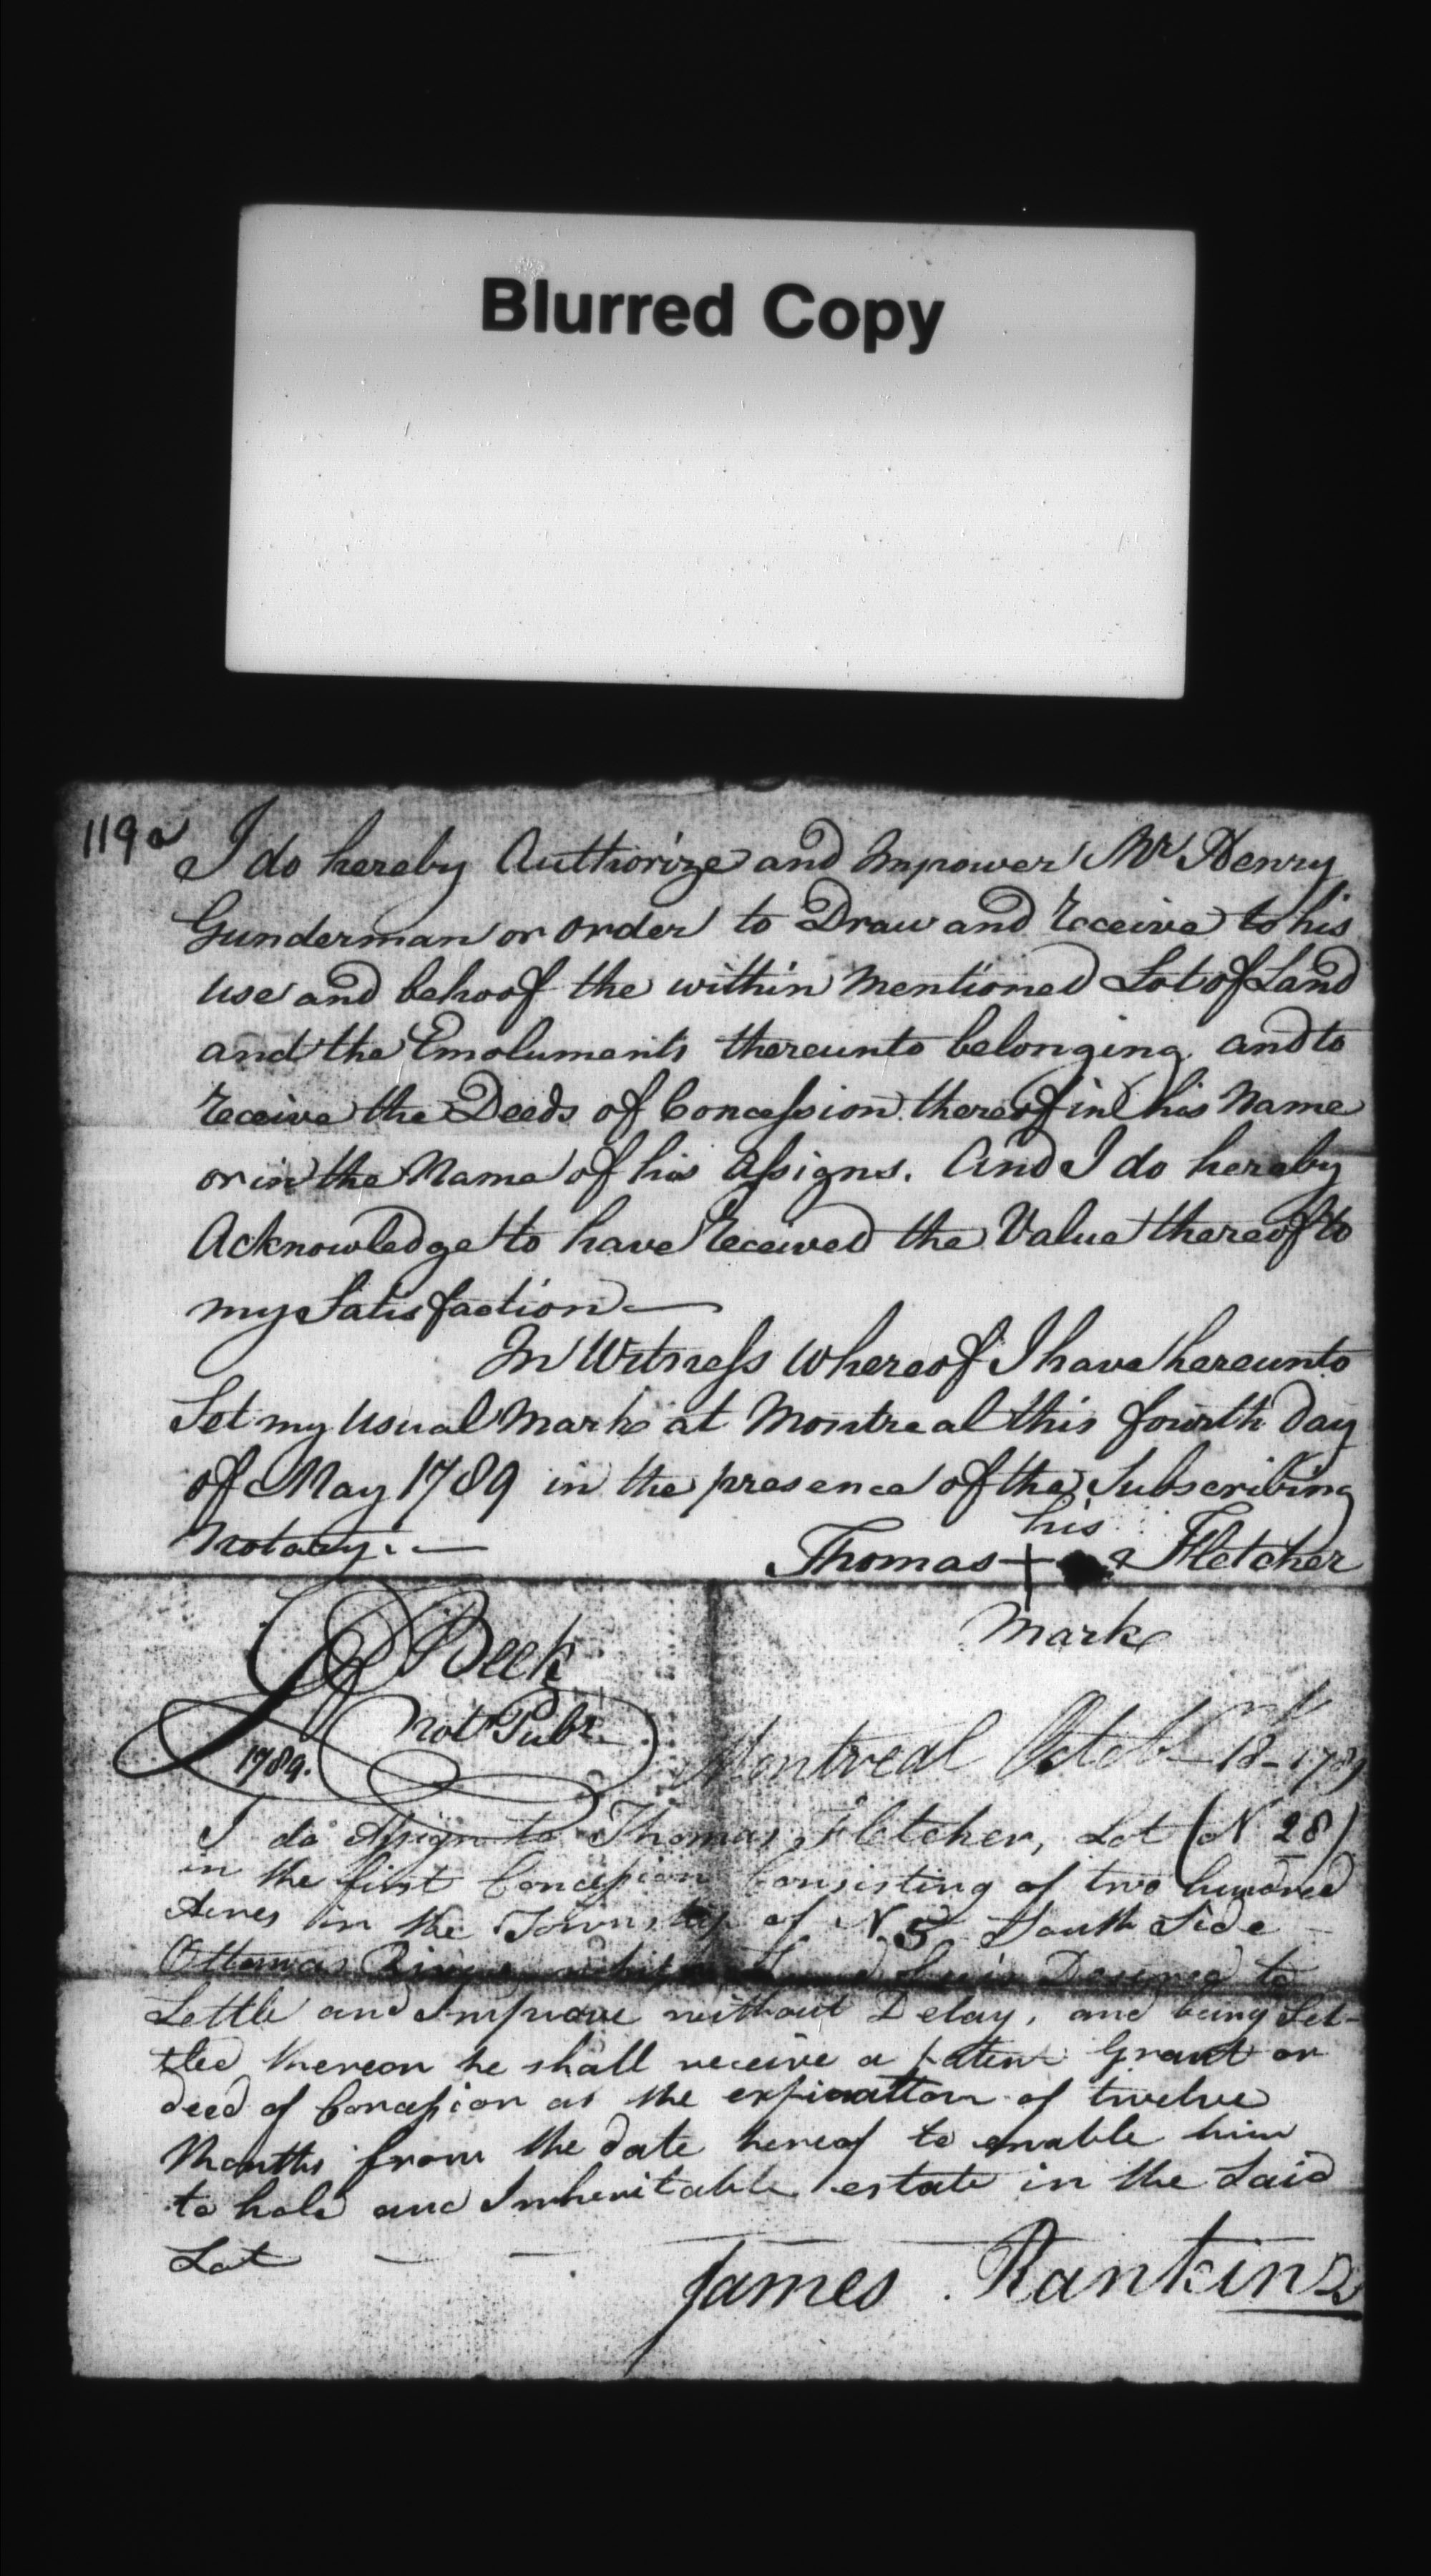 Blurred Copy
119a
I do hereby Authorize and Impower Mr Henry
Gunderman or order to Draw and receive to his
use and behoof the within Mentioned Lot of Land
and the Emoluments thereunto belonging and to
receive the Deeds of Concession thereof in his Name
or in the Name of his Assigns. And I do hereby
Acknowledge to have received the Value thereof to
my Satisfaction —
In Witness whereof I have hereunto
Set my Usual Mark at Montreal this fourth day
of May 1789 in the presence of the Subscribing
Notary. —
his
Thomas + Fletcher
Mark
Beek
Not Pub
1789.
Montreal Octob 18 - 178
I do Assign to Thomas Fletcher, Lot (N 28)
in the first Concession Consisting of two hundred
Acres in the Township of N 5 South Side
Ottawas River Desired to
Settle and Improve without Delay, and being Set-
tled thereon he shall receive a patent Grant or
deed of Concession at the expiration of twelve
Months from the date hereof to enable him
to hold and Inheritable estate in the Said
Lot — — .
James Rankin